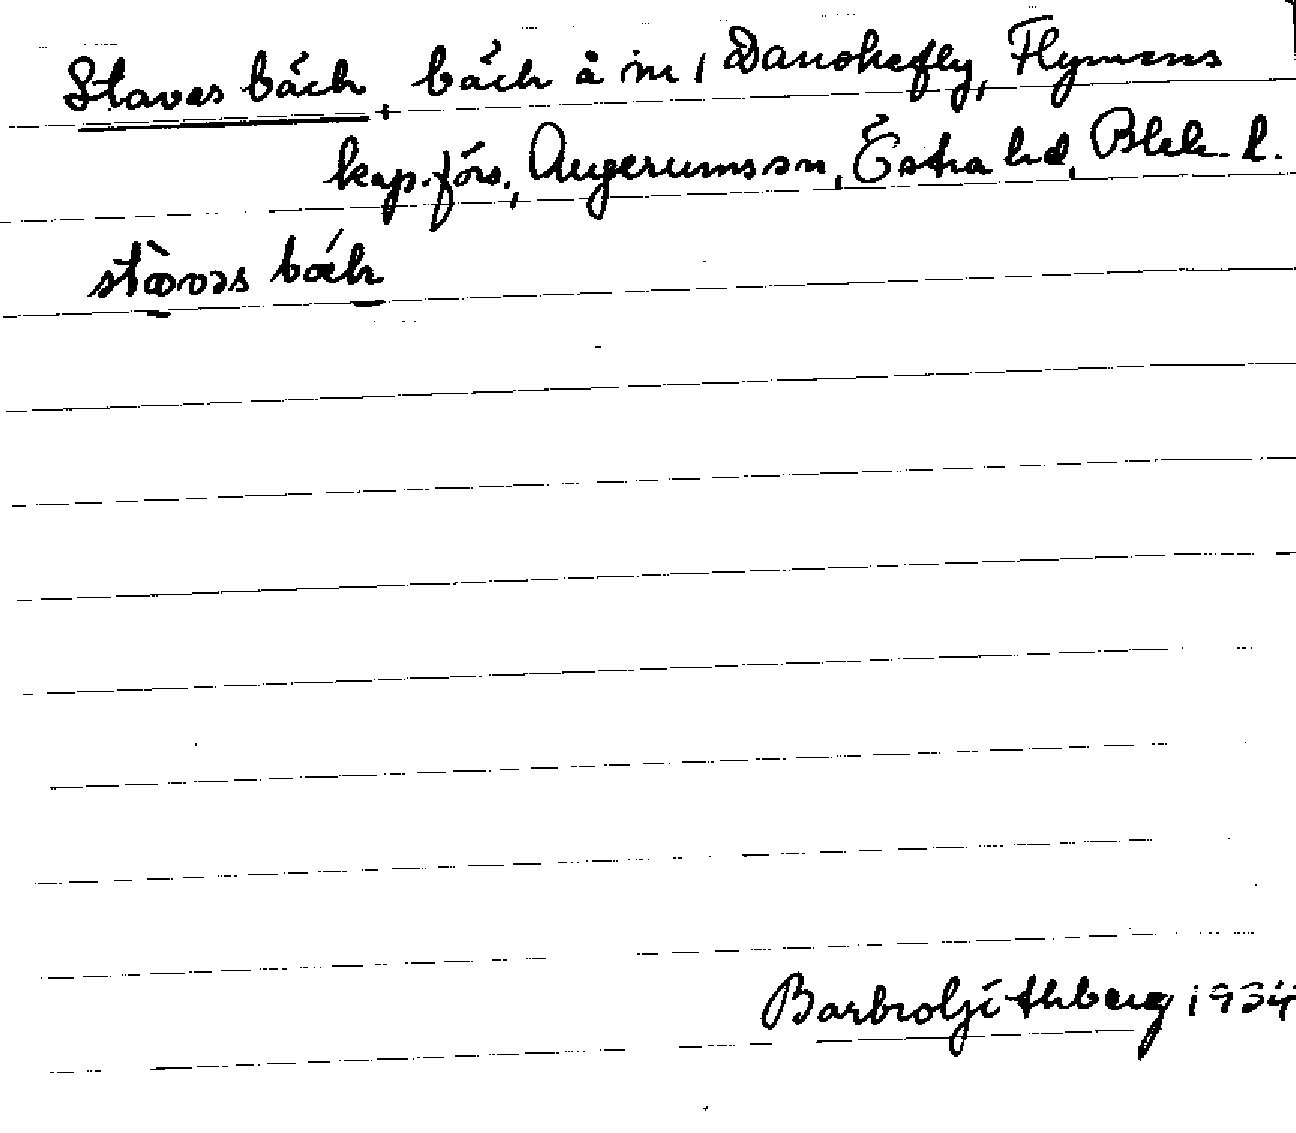 Staves bäck, bäck å in i Danskefly, Flymens
kap.förs., Augerums sn, Östra hd, Blek. l.
stàvəs bǽk
Barbro Göthberg 1934